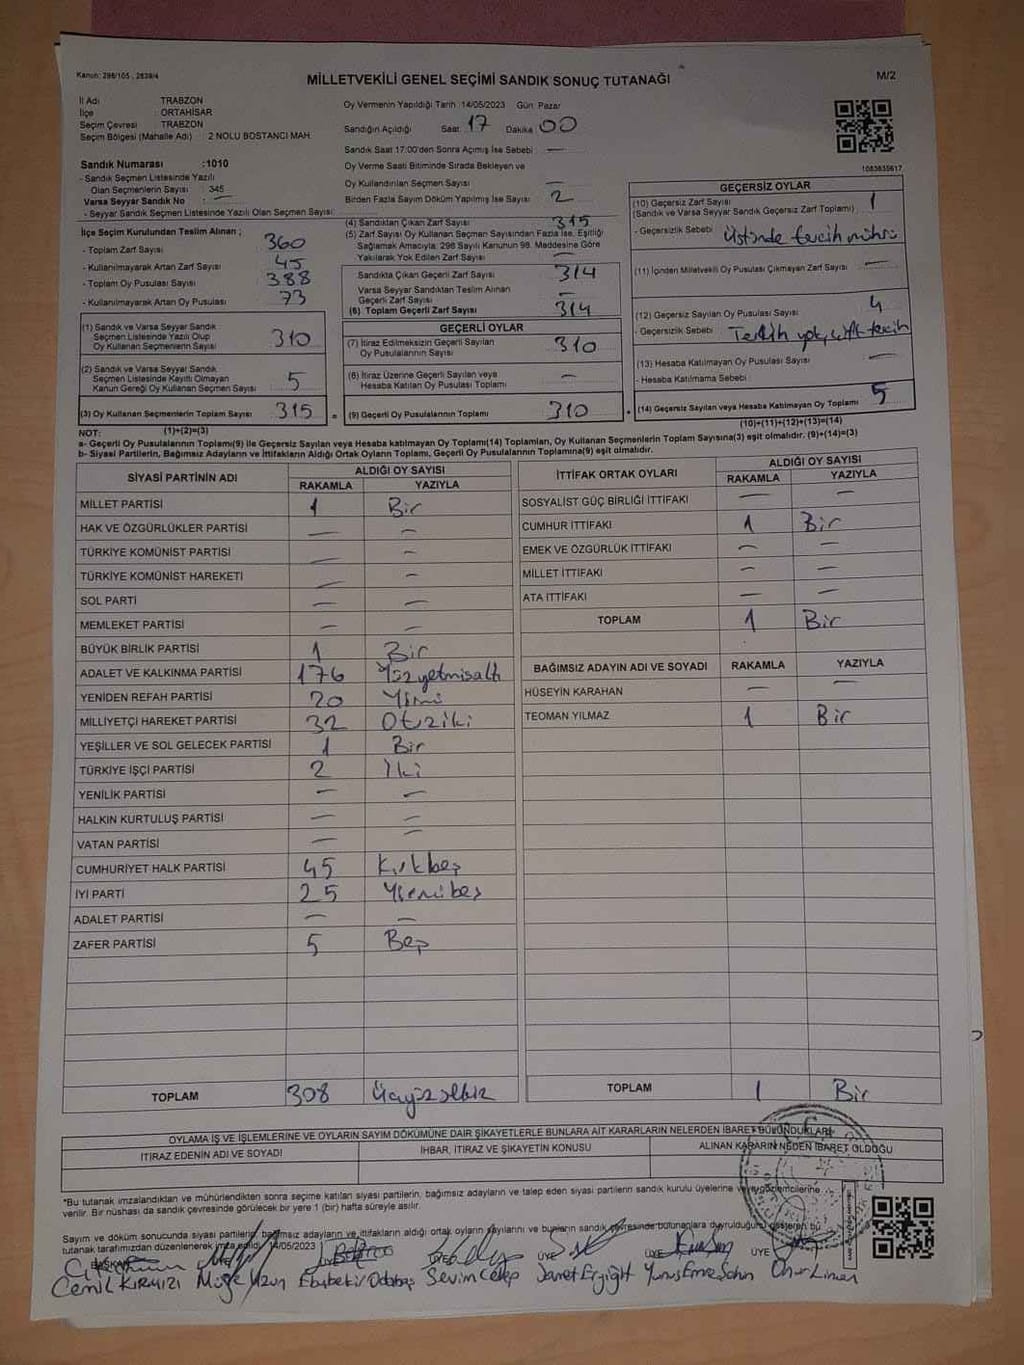 Kanun: 298/105 , 2839/4
MİLLETVEKİLİ GENEL SEÇİMİ SANDIK SONUÇ TUTANAĞI
M/2
İl Adı TRABZON
İlçe ORTAHİSAR
Seçim Çevresi TRABZON
Seçim Bölgesi (Mahalle Adı) 2 NOLU BOSTANCI MAH
Sandık Numarası :1010
- Sandık Seçmen Listesinde Yazılı
Olan Seçmenlerin Sayısı : 345
Varsa Seyyar Sandık No : —
- Seyyar Sandık Seçmen Listesinde Yazılı Olan Seçmen Sayısı:
Oy Vermenin Yapıldığı Tarih 14/05/2023 Gün: Pazar
Sandığın Açıldığı Saat 17 Dakika 00
Sandık Saat 17:00'den Sonra Açımış İse Sebebi : —
Oy Verme Saati Bitiminde Sırada Bekleyen ve
Oy Kullandırılan Seçmen Sayısı —
Birden Fazla Sayım Döküm Yapılmış İse Sayısı 2
1083835617
İlçe Seçim Kurulundan Teslim Alınan ;
- Toplam Zarf Sayısı 360
- Kullanılmayarak Artan Zarf Sayısı 45
- Toplam Oy Pusulası Sayısı 388
- Kullanılmayarak Artan Oy Pusulası 73
(1) Sandık ve Varsa Seyyar Sandık
Seçmen Listesinde Yazılı Olup
Oy Kullanan Seçmenlerin Sayısı 310
(2) Sandık ve Varsa Seyyar Sandık
Seçmen Listesinde Kayıtlı Olmayan
Kanun Gereği Oy Kullanan Seçmen Sayısı 5
(3) Oy Kullanan Seçmenlerin Toplam Sayısı 315
(4) Sandıktan Çıkan Zarf Sayısı 315
(5) Zarf Sayısı Oy Kullanan Seçmen Sayısından Fazla İse, Eşitliği
Sağlamak Amacıyla; 298 Sayılı Kanunun 98. Maddesine Göre
Yakılarak Yok Edilen Zarf Sayısı —
Sandıkta Çıkan Geçerli Zarf Sayısı 314
Varsa Seyyar Sandıktan Teslim Alınan
Geçerli Zarf Sayısı —
(6) Toplam Geçerli Zarf Sayısı 314
GEÇERLİ OYLAR
(7) İtiraz Edilmeksizin Geçerli Sayılan
Oy Pusulalarının Sayısı 310
(8) İtiraz Üzerine Geçerli Sayılan veya
Hesaba Katılan Oy Pusulası Toplamı —
(9) Geçerli Oy Pusulalarının Toplamı 310
GEÇERSİZ OYLAR
(10) Geçersiz Zarf Sayısı 1
(Sandık ve Varsa Seyyar Sandık Geçersiz Zarf Toplamı)
- Geçersizlik Sebebi : Üstünde tercih mührü
(11) İçinden Milletvekili Oy Pusulası Çıkmayan Zarf Sayısı —
(12) Geçersiz Sayılan Oy Pusulası Sayısı 4
- Geçersizlik Sebebi : Tercih yok, çift tercih
(13) Hesaba Katılmayan Oy Pusulası Sayısı —
- Hesaba Katılmama Sebebi :
(14) Geçersiz Sayılan veya Hesaba Katılmayan Oy Toplamı 5
NOT: (1)+(2)=(3)
(10)+(11)+(12)+(13)=(14)
a- Geçerli Oy Pusulalarının Toplamı(9) ile Geçersiz Sayılan veya Hesaba katılmayan Oy Toplamı(14) Toplamları, Oy Kullanan Seçmenlerin Toplam Sayısına(3) eşit olmalıdır. (9)+(14)=(3)
b- Siyasi Partilerin, Bağımsız Adayların ve İttifakların Aldığı Ortak Oyların Toplamı, Geçerli Oy Pusulalarının Toplamına(9) eşit olmalıdır.
SİYASİ PARTİNİN ADI ALDIĞI OY SAYISI
RAKAMLA YAZIYLA
MİLLET PARTİSİ 1 Bir
HAK VE ÖZGÜRLÜKLER PARTİSİ — —
TÜRKİYE KOMÜNİST PARTİSİ — —
TÜRKİYE KOMÜNİST HAREKETİ — —
SOL PARTİ — —
MEMLEKET PARTİSİ — —
BÜYÜK BİRLİK PARTİSİ 1 Bir
ADALET VE KALKINMA PARTİSİ 176 Yüzyetmisaltı
YENİDEN REFAH PARTİSİ 20 Yirmi
MİLLİYETÇİ HAREKET PARTİSİ 32 Otuziki
YEŞİLLER VE SOL GELECEK PARTİSİ 1 Bir
TÜRKİYE İŞÇİ PARTİSİ 2 İki
YENİLİK PARTİSİ — —
HALKIN KURTULUŞ PARTİSİ — —
VATAN PARTİSİ — —
CUMHURİYET HALK PARTİSİ 45 Kırkbeş
İYİ PARTİ 25 Yirmibeş
ADALET PARTİSİ — —
ZAFER PARTİSİ 5 Beş
TOPLAM 308 Üçyüzsekiz
İTTİFAK ORTAK OYLARI ALDIĞI OY SAYISI
RAKAMLA YAZIYLA
SOSYALİST GÜÇ BİRLİĞİ İTTİFAKI — —
CUMHUR İTTİFAKI 1 Bir
EMEK VE ÖZGÜRLÜK İTTİFAKI — —
MİLLET İTTİFAKI — —
ATA İTTİFAKI — —
TOPLAM 1 Bir
BAĞIMSIZ ADAYIN ADI VE SOYADI RAKAMLA YAZIYLA
HÜSEYİN KARAHAN — —
TEOMAN YILMAZ 1 Bir
TOPLAM 1 Bir
OYLAMA İŞ VE İŞLEMLERİNE VE OYLARIN SAYIM DÖKÜMÜNE DAİR ŞİKAYETLERLE BUNLARA AİT KARARLARIN NELERDEN İBARET BULUNDUKLARI
İTİRAZ EDENİN ADI VE SOYADI İHBAR, İTİRAZ VE ŞİKAYETİN KONUSU ALINAN KARARIN NEDEN İBARET OLDUĞU
*Bu tutanak imzalandıktan ve mühürlendikten sonra seçime katılan siyasi partilerin, bağımsız adayların ve talep eden siyasi partilerin sandık kurulu üyelerine veya gözlemcilerine
verilir. Bir nüshası da sandık çevresinde görülecek bir yere 1 (bir) hafta süreyle asılır.
Sayım ve döküm sonucunda siyasi partilerin, bağımsız adayların ve ittifakların aldığı ortak oyların sayılarını ve bunların sandık çevresinde bulunanlara duyurulduğunu gösteren bu
tutanak tarafımızdan düzenlenerek imza edildi. 14/05/2023
BAŞKAN ÜYE ÜYE ÜYE
Cemil KIRMIZI Müge Uzun Ebubekir Odabaş Sevim Çelep Janet Ergiğit Yunus Emre Şahin Onur Liman